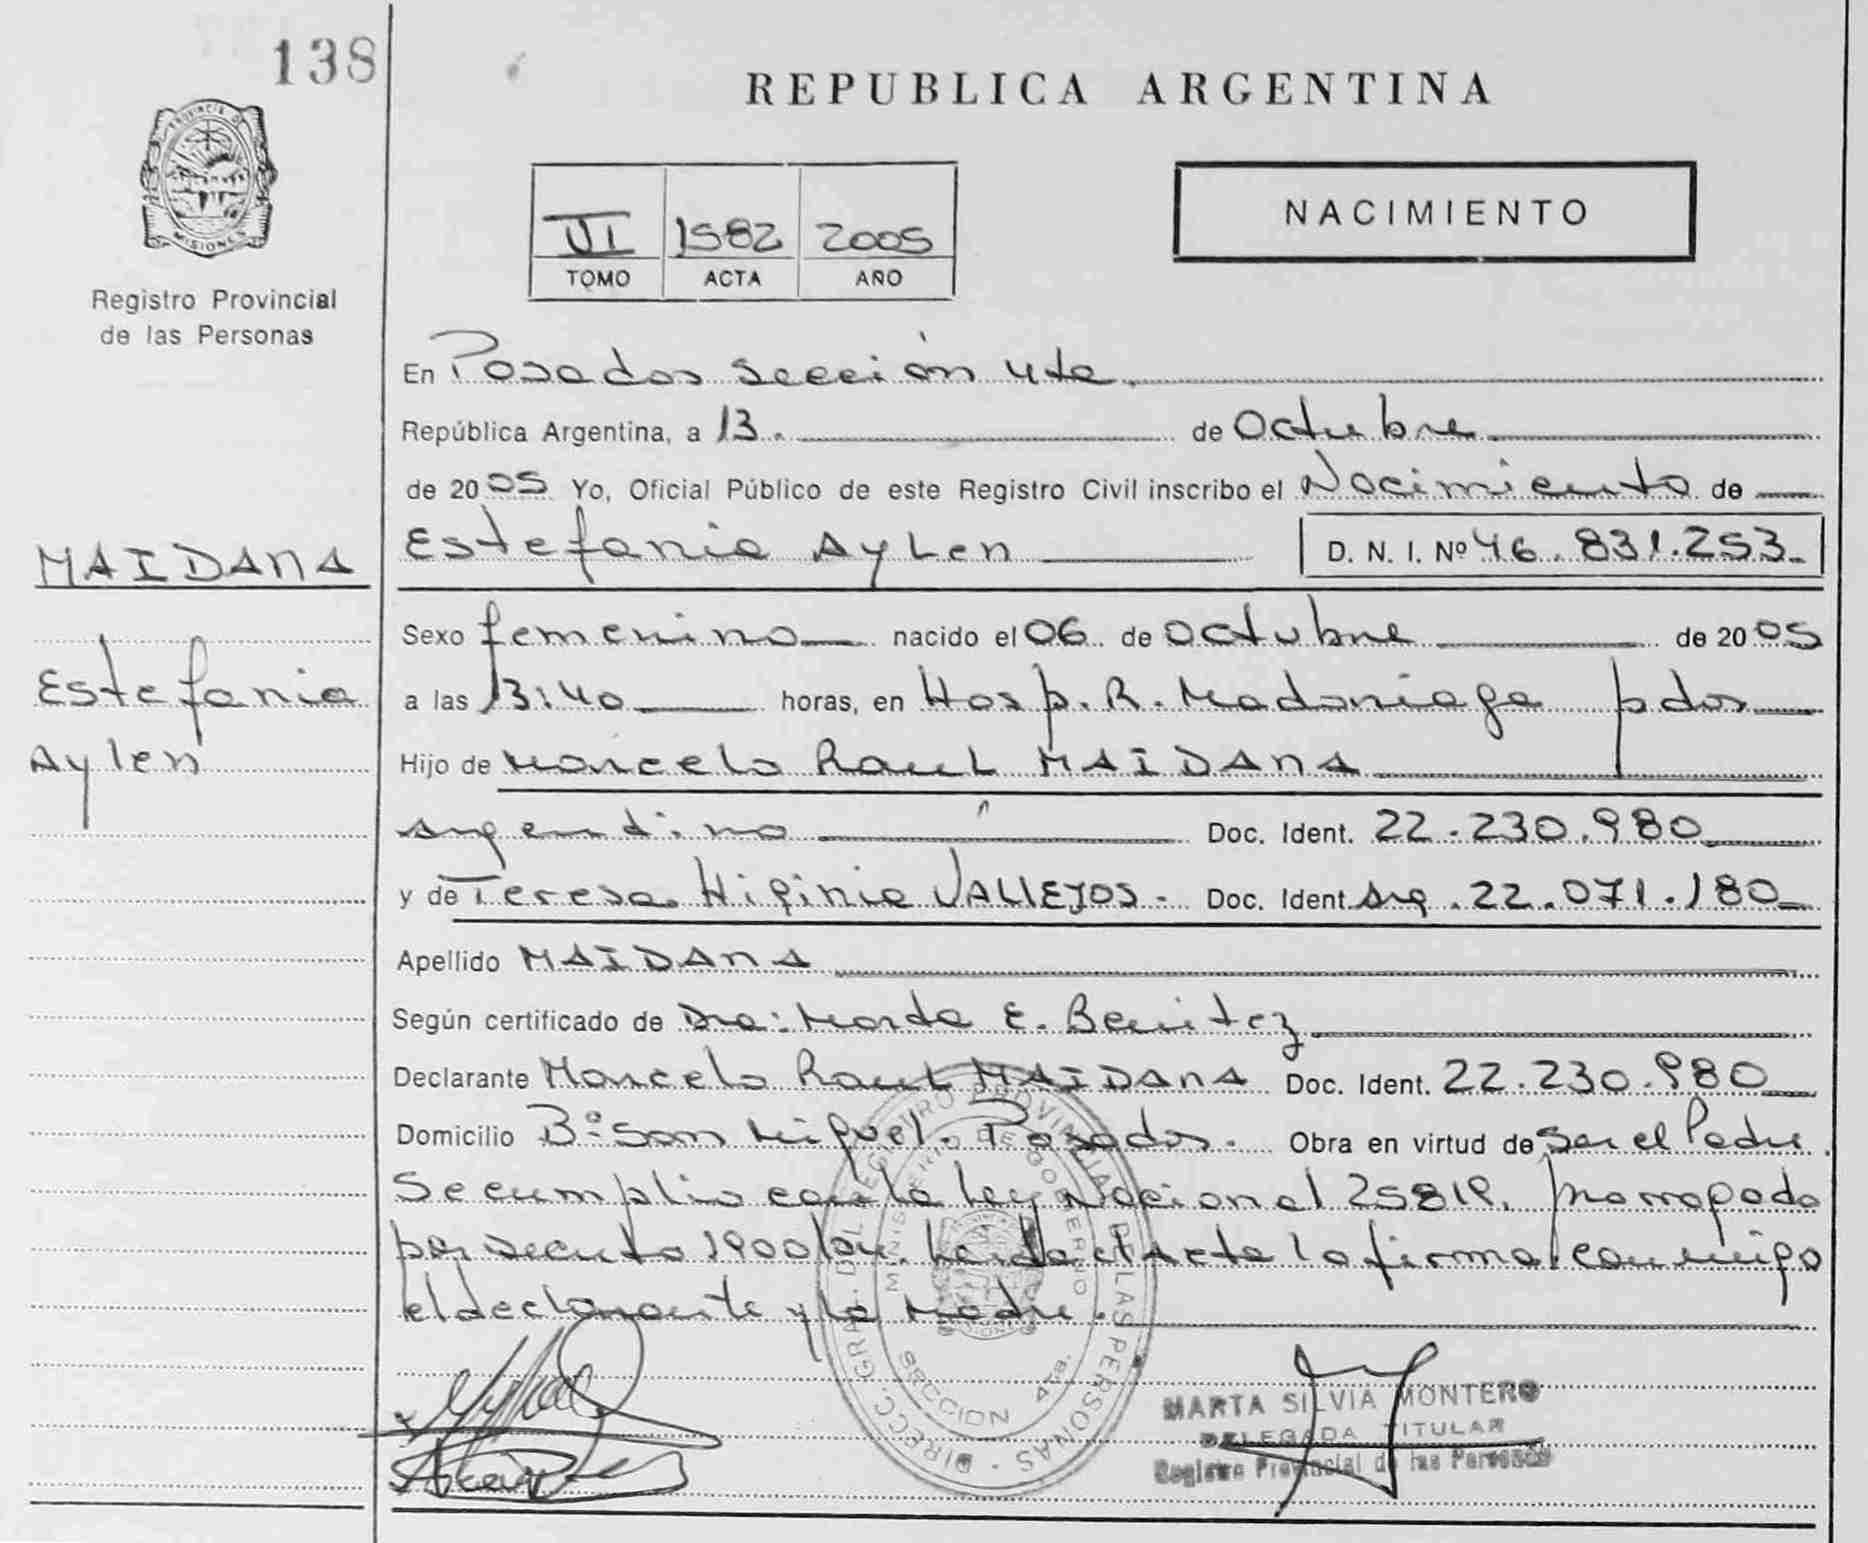 138
PROVINCIA DE
MISIONES
Registro Provincial
de las Personas
MAIDANA
Estefania
Aylen
REPUBLICA ARGENTINA
VI 1582 2005
TOMO ACTA AÑO
NACIMIENTO
En Posadas sección 4ta.
República Argentina, a 13. de Octubre
de 2005 Yo, Oficial Público de este Registro Civil inscribo el Nacimiento de
Estefania Aylen D. N. I. Nº 46.831.253.
Sexo femenino nacido el 06 de Octubre de 2005
a las 13:40 horas, en Hosp. R. Madariaga pdas
Hijo de Marcelo Raul MAIDANA
argentino Doc. Ident. 22.230.980
y de Teresa Higinia VALLEJOS. Doc. Ident. Arg. 22.071.180
Apellido MAIDANA
Según certificado de Dra: Marta E. Benitez
Declarante Marcelo Raul MAIDANA Doc. Ident. 22.230.980
Domicilio Bº San Miguel. Posadas. Obra en virtud de ser el Padre.
Se cumplio con la ley Nacional 25819, prorrogado
por decreto 1900/04. Leida el Acta la firma conmigo
el declarante y la Madre.
DIRECC. GRAL. DEL REGISTRO PROVINCIAL DE LAS PERSONAS
MINISTERIO DE GOBIERNO
SECCION 4ta.
MARTA SILVIA MONTERO
DELEGADA TITULAR
Registro Provincial de las Personas